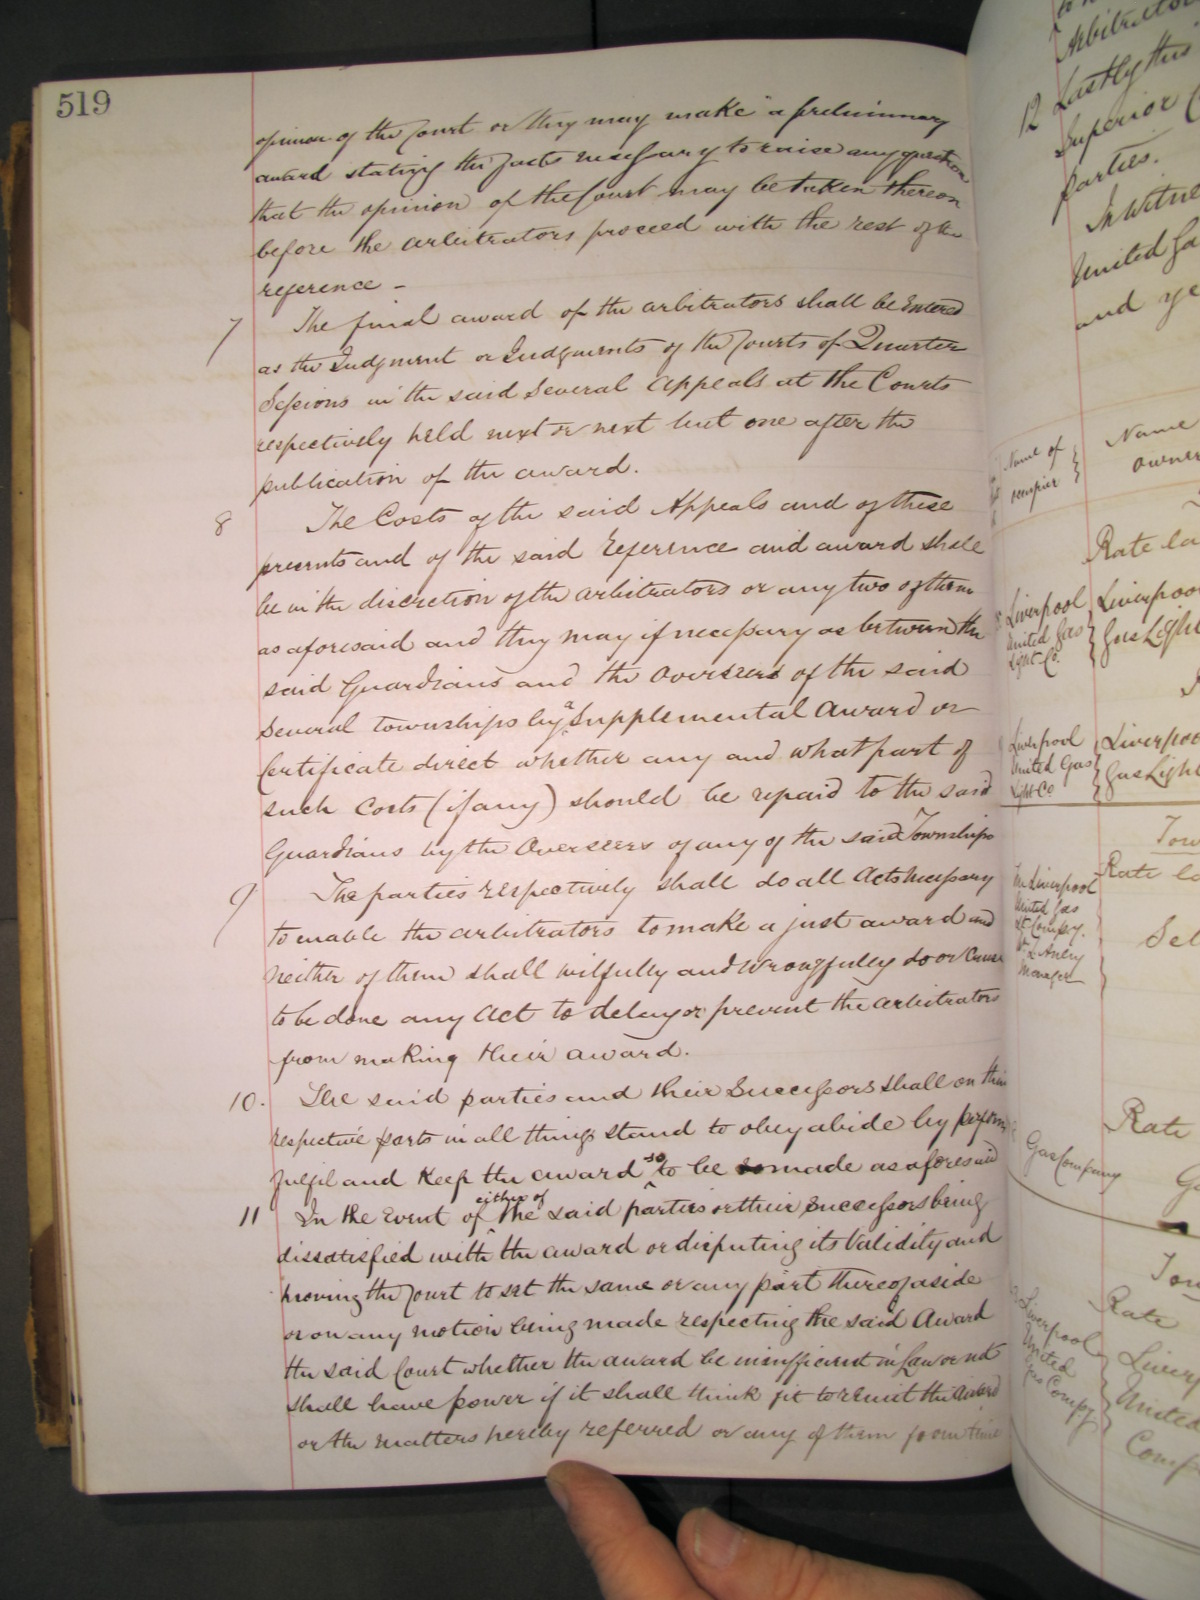 519
opinion of the Court or they may make a preliminary
award stating the facts necessary to raise any question
that the opinion of the Court may be taken thereon
before the arbitrators proceed with the rest of the
reference -
7 The final award of the arbitrators shall be Entered
as the Judgment or Judgments of the Courts of Quarter
Sessions in the said Several Appeals at the Courts
respectively held next or next but one after the
publication of the award.
8 The Costs of the said Appeals and of these
presents and of the said Reference and award shall
be in the discretion of the arbitrators or any two of them
as aforesaid and they may if necessary as between the
said Guardians and the Overseers of the said
Several townships by a Supplemental Award or
Certificate direct whether any and what part of
such Costs (if any) should be repaid to the said
Guardians by the Overseers of any of the said Townships
9 The parties respectively shall do all Acts necessary
to enable the arbitrators to make a just award and
neither of them shall wilfully and wrongfully do or Cause
to be done any Act to delay or prevent the arbitrators
from making their award.
10. The said parties and their Successors shall on their
respective parts in all things stand to obey abide by perform
fulfil and Keep the award so to be made as aforesaid
11 In the Event of either of the said parties or their Successors being
dissatisfied with the award or disputing its Validity and
moving the Court to set the same or any part thereof aside
or on any motion being made respecting the said Award
the said Court whether the award be insufficient in Law or not
shall have power if it shall think fit to remit the Award
or the matters hereby referred or any of them from time
Arbitrators
12 Lastly this
Superior
parties.
In Witness
United Ga
and ye
Name of
occupier
Name
owner
Rate la
Liverpool
United Gas
Light Co.
Liverpool
Gas Light
Liverpool
United Gas
Light Co
Liverpoo
Gas Light
Tow
Rate la
Liverpool
United Gas
Lt Company.
Manager
Rate
Gas Company
Tow
Rate
Liverpool
United
Gas Compy
Liverp
United
Comp